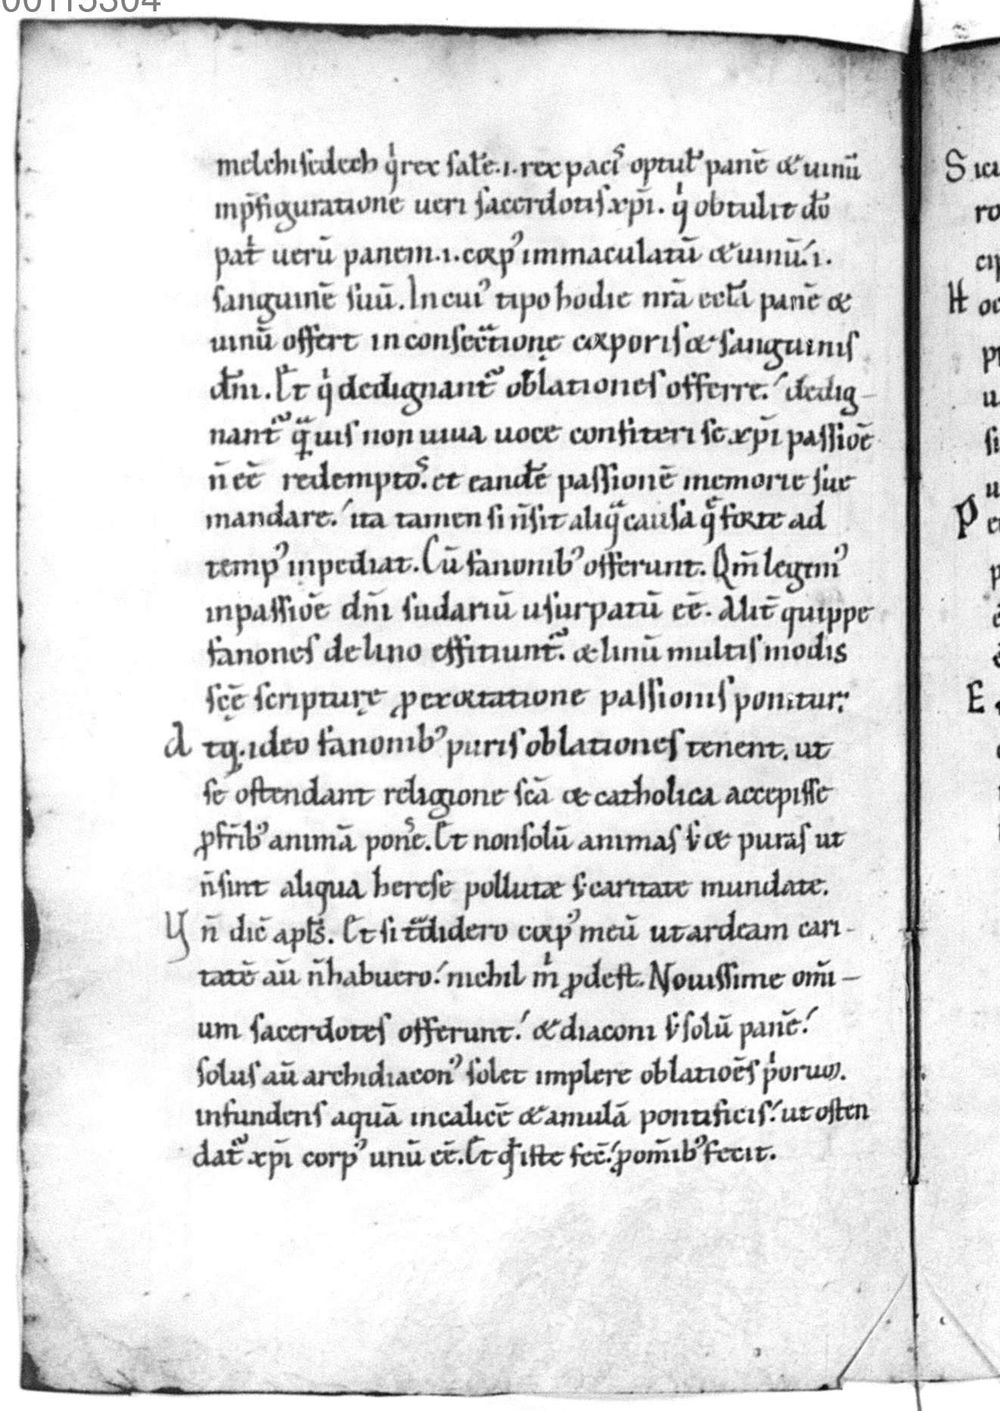 00115304
melchisedech qͥ rex salē .i. rex paciˢ optul̄ panē & uinū
inp̄figuratione ueri sacerdotis xp̄i. qͥ obtulit dō
pat̄ uerū panem .i. corpꝰ immaculatū & uinū .i.
sanguinē suū. In cuiꝰ tipo hodie nr̄a eccl̄a panē &
uinū offert in consecͣtionę corporis & sanguinis
dn̄i. Et qͥ dedignant᷑ oblationes offerre. dedig-
nant᷑ qͣuis non uiua uoce confiteri se xp̄i passiōe
n̄ eē redemptoˢ. et eandē passionē memorie sue
mandare. ita tamen si n̄ sit aliqͣ causa qͣ forte ad
tempꝰ inpediat. Cū fanonibꝰ offerunt. Qm̄ legimꝰ
in passiōe dn̄i sudariū usurpatū eē. Alit̄ quippe
fanones de lino effitiunt᷑. & linū multis modis
scę̄ scripturę ꝑ exortatione passionis ponitur.
Atq. ideo fanonibꝰ puris oblationes tenent. ut
se ostendant religione scā & catholica accepisse
ꝓ fr̄ibꝰ animā pon̄e. Et non solū animas s; & puras ut
n̄ sint aliqua herese pollutæ s; caritate mundate.
Un̄ dic̄ apl̄s. Et si tͣdidero corpꝰ meū ut ardeam cari-
tatē aū n̄ habuero. nichil m̄ ꝓdest. Nouissime om̄i-
um sacerdotes offerunt. & diaconi s; solū panē.
solus aū archidiaconꝰ solet implere oblatiōes pͥorum.
infundens aquā in calicē & amulā pontificis. ut osten
dat᷑ xp̄i corpꝰ unū eē. Et qd̄ iste fec̄. ꝓ om̄ibꝰ fecit.